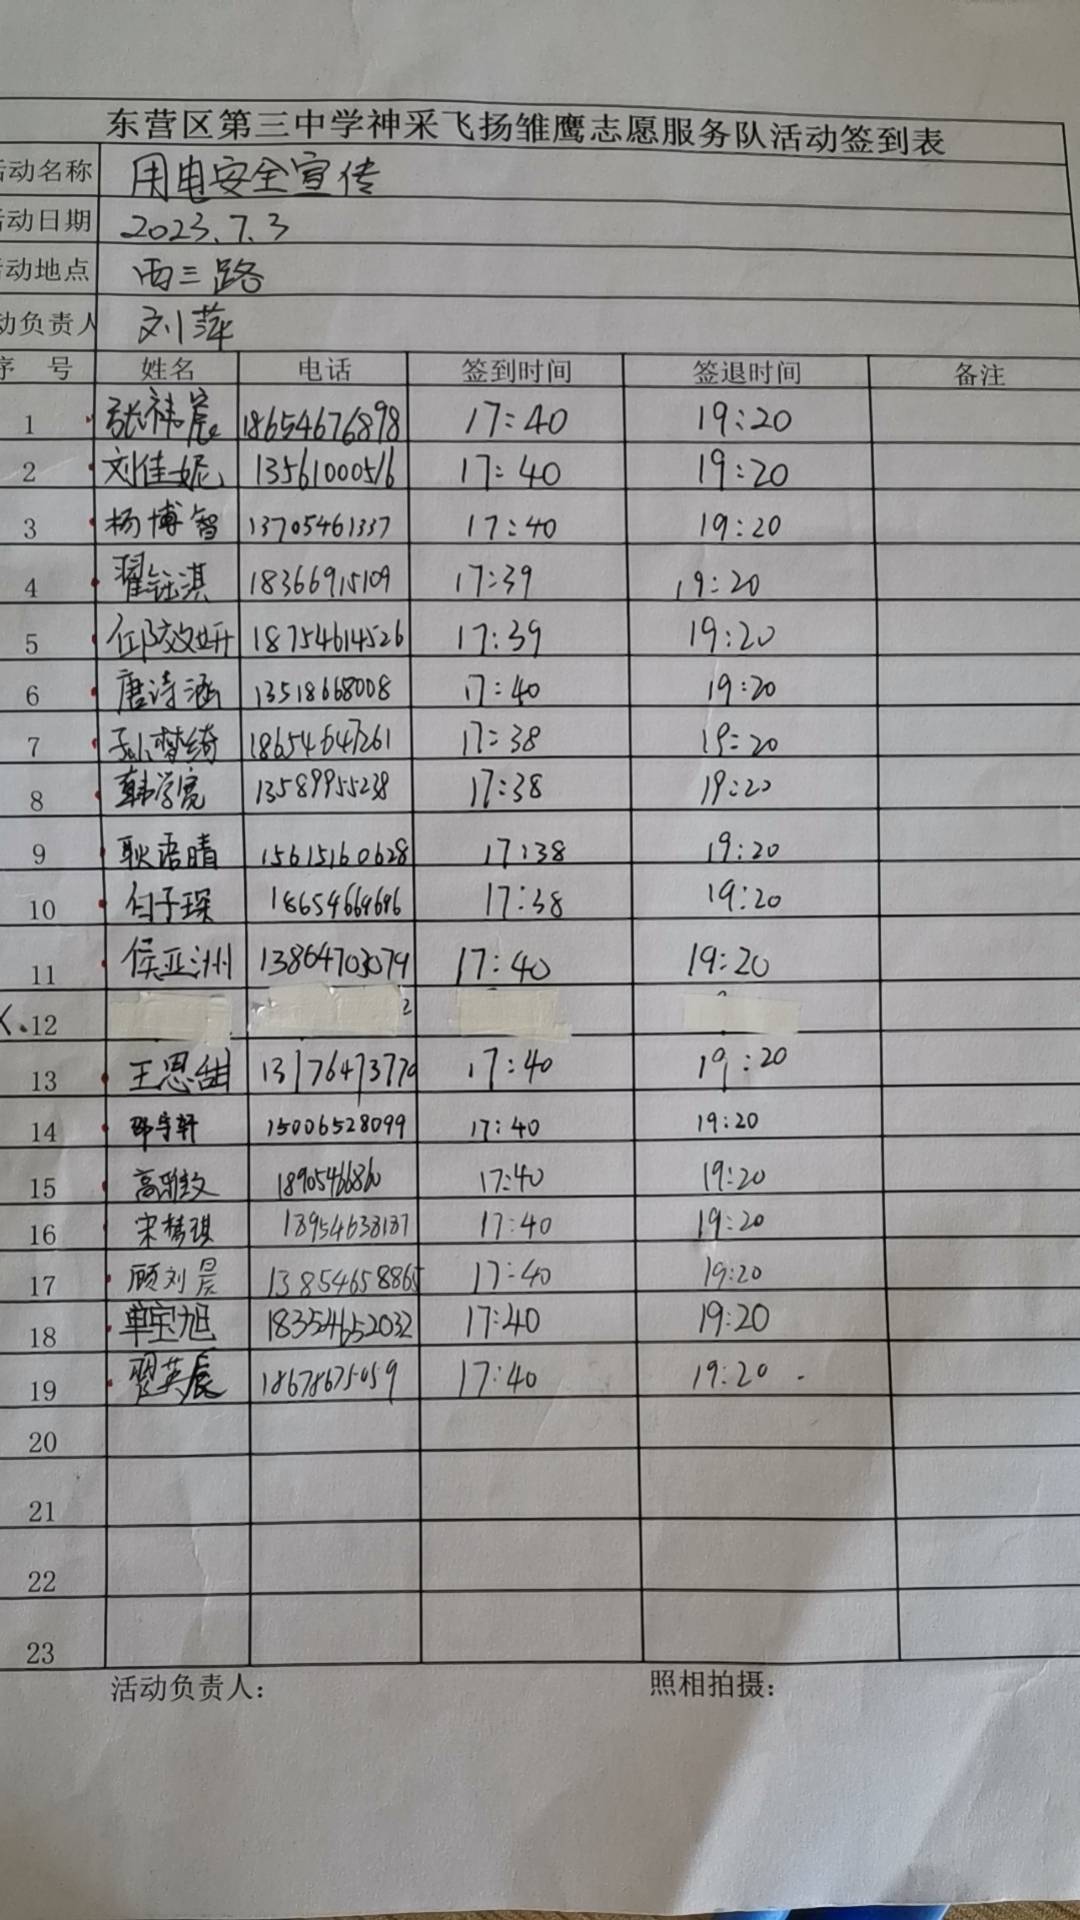 东营区第三中学神采飞扬雏鹰志愿服务队活动签到表
活动名称 用电安全宣传
活动日期 2023.7.3
活动地点 西三路
动负责人 刘萍
序 号 姓名 电话 签到时间 签退时间 备注
1 张祎宸 18654676898 17:40 19:20
2 刘佳妮 13561000516 17:40 19:20
3 杨博智 13705461337 17:40 19:20
4 翟钰淇 18366915109 17:39 19:20
5 邱效妍 18754614526 17:39 19:20
6 唐诗涵 13518668008 17:40 19:20
7 孙梦绮 18654647261 17:38 19:20
8 韩学宽 13589955238 17:38 19:20
9 耿语晴 15615160628 17:38 19:20
10 付子琛 18654664646 17:38 19:20
11 侯亚洲 13864703079 17:40 19:20
X.12 2
13 王思甜 13176473770 17:40 19:20
14 邵宇轩 15006528099 17:40 19:20
15 高雅文 18905466860 17:40 19:20
16 宋梦琪 18954638187 17:40 19:20
17 顾刘昊 13854658865 17:40 19:20
18 单宝旭 18354652032 17:40 19:20
19 英辰 18678675059 17:40 19:20
20
21
22
23
活动负责人: 照相拍摄: